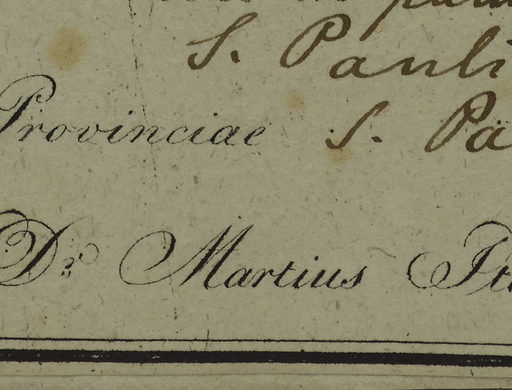 S. Pauli
Provinciae S. Pa
Dr. Martius It